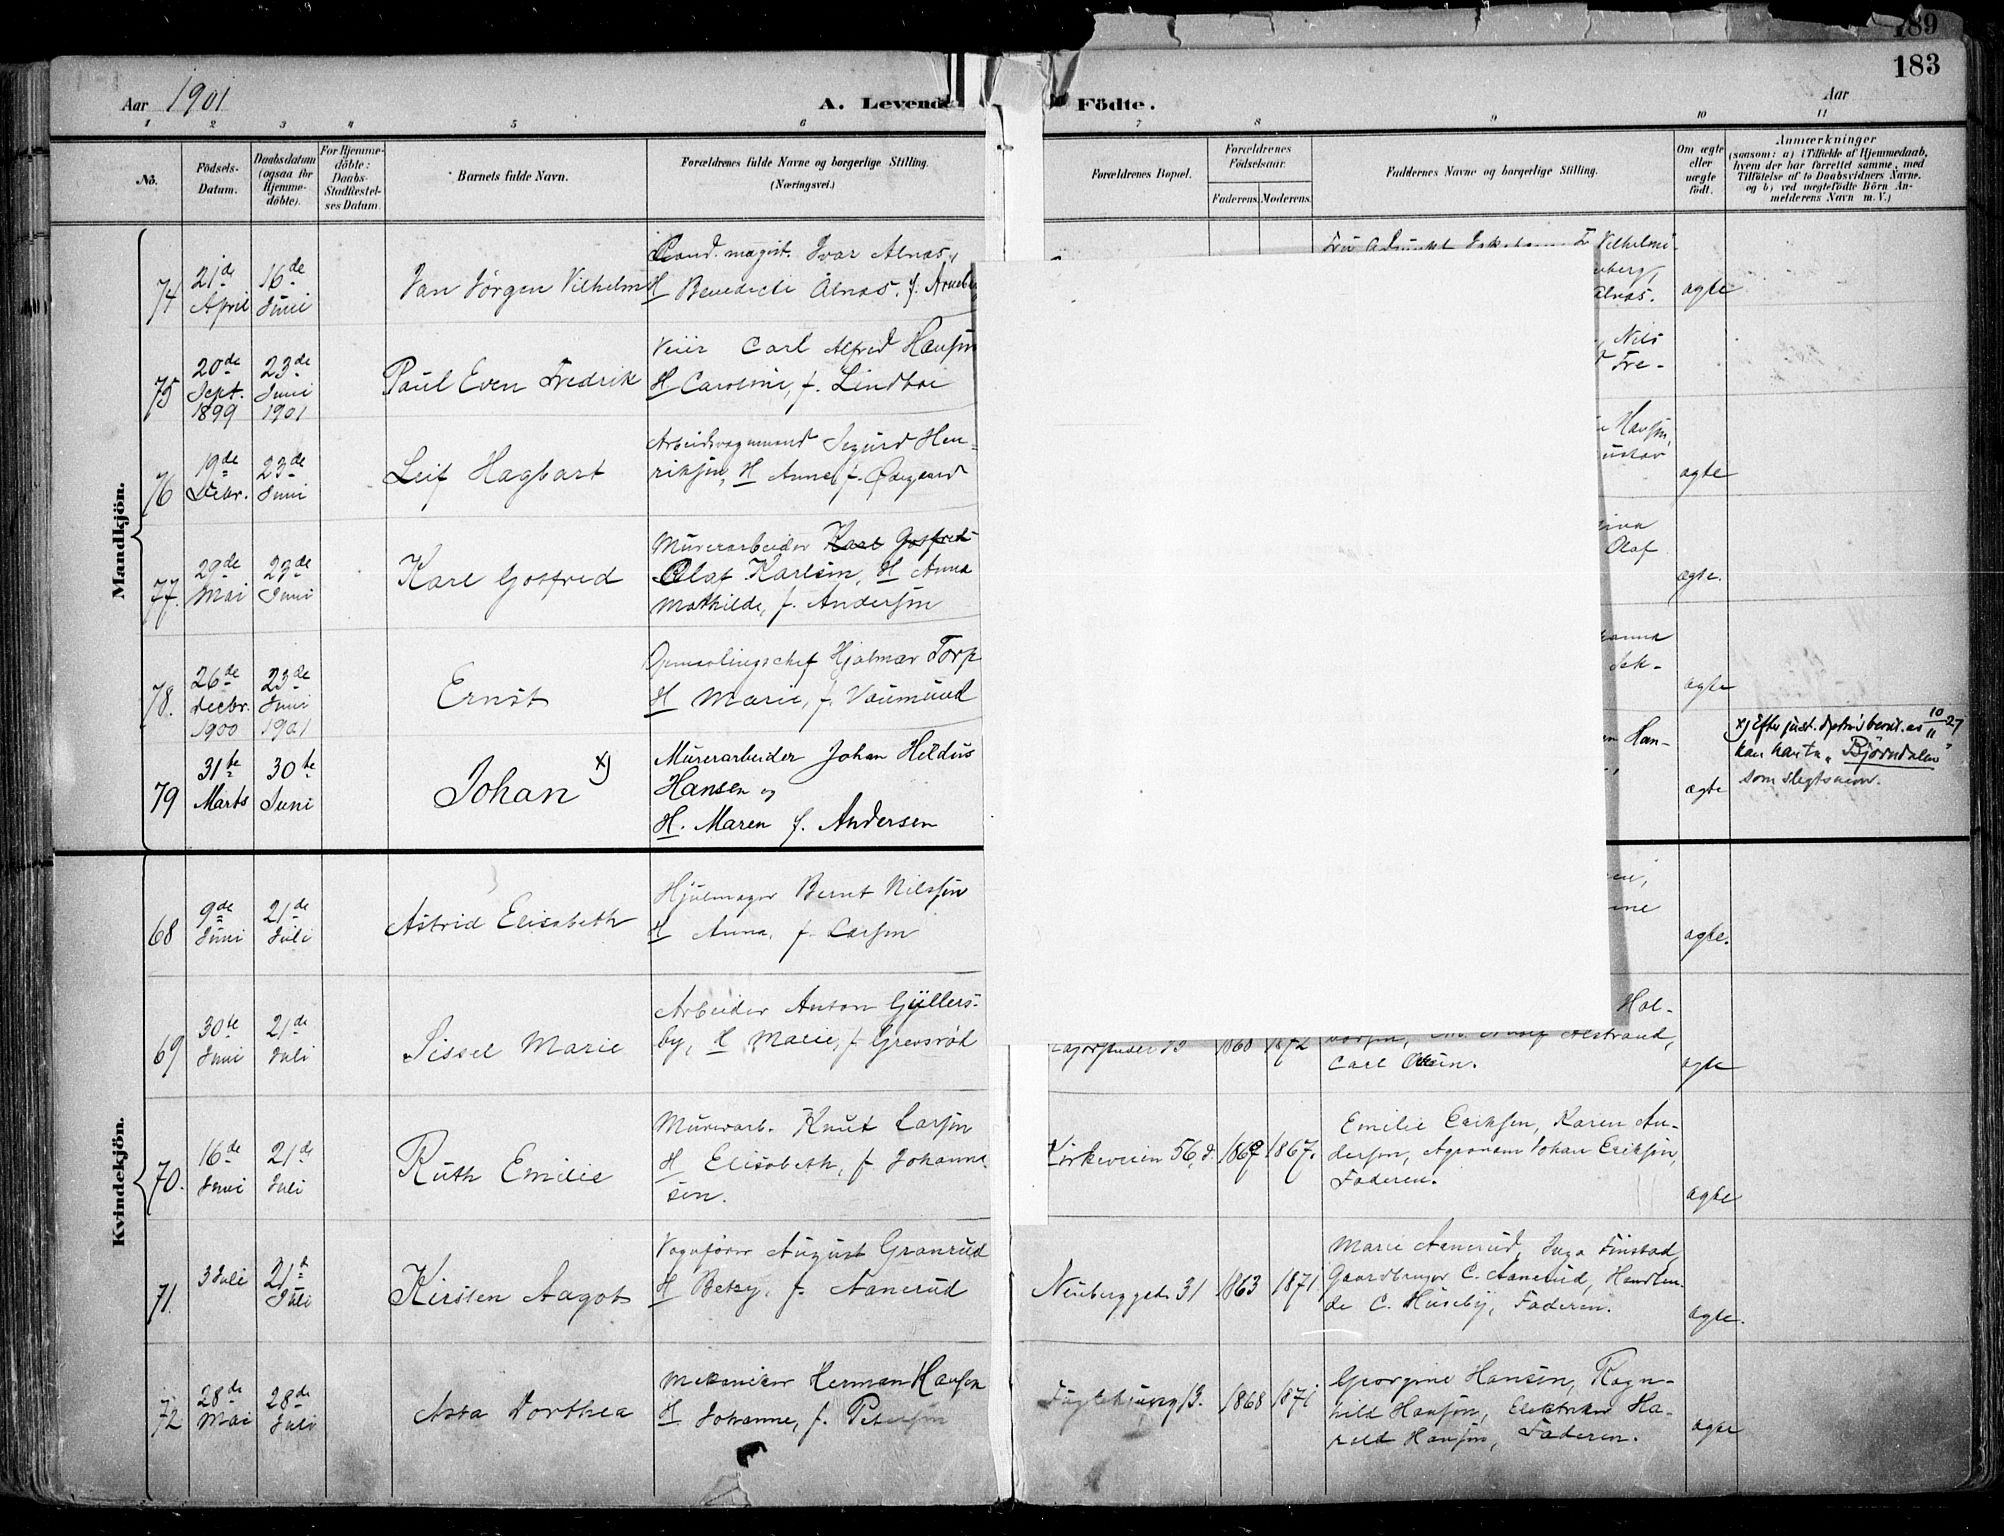 189
183
Aar 1901
A. Levende Födte.
Aar
1 2 3 4 5 6 7 8 9 10 11
No.
Födsels-
Datum.
Daabsdatum
(ogsaa for
Hjemme-
döbte).
For Hjemme-
döbte:
Daabs-
Stadfæstel-
ses Datum.
Barnets fulde Navn.
Forældrenes fulde Navne og borgerlige Stilling.
(Næringsvei.)
Forældrenes Bopæl.
Forældrenes
Födselsaar.
Faderens. Moderens.
Faddernes Navne og borgerlige Stilling.
Om ægte
eller
uægte
födt.
Anmærkninger
(saasom: a) i Tilfælde af Hjemmedaab,
hvem der har forrettet samme, med
Tilföielse af to Daabsvidners Navne,
og b) ved uægtefödte Börn An-
melderens Navn m. V.)
Mandkjön.
74
21de
April
16de
Juni
Jan Jørgen Vilhelm
Cand. magist. Ivar Alnæs,
H Benedicte Alnæs, f.
Vilhelmi-
berg,
Alnæs.
ægte
75
20de
Sept.
1899
23de
Juni
1901
Paul Even Fredrik
Carl Alfred Hansen
H Caroline, f. Lindboe
Nils
Fre-
76
19de
Decbr.
23de
Juni
Leif Hagbart
Arbeidsvognmand Sigurd Hen-
riksen, H Anna, f.
Hansen,
ustav
ægte
77.
29de
Mai
23de
Juni
Karl Gotfred
Murerarbeider Karl Gotfred
Olaf Karlsen, H Anna
Mathilde, f. Andersen
Olaf
ægte.
78.
26de
Decbr.
1900
23de
Juni
1901
Ernst
Opmaalingschef Hjalmar Torp
H Marie, f. Vaumund
anna
ægte
79
31te
Marts
30te
Juni
Johan x)
Murerarbeider Johan Heldus
Hansen og
H. Maren f. Andersen
Han-
ægte
x) Efter just. dptm's bevil. av 10/11 27
kan han ta "Björndalen"
som slegtsnavn.
Kvindekjön.
68
9de
Juni
21de
Juli
Astrid Elisabeth
Hjulmager Bernt Nilssen
H Anna, f. Larsen
ægte.
69
30te
Juni
21de
Juli
Sissel Marie
Arbeider Anton Gyllers-
by, H Marie, f. Grevsrød
1872
Hol-
Alstrand,
Carl Olsen.
ægte
70.
16de
Juni
21de
Juli
Ruth Emilie
Murerarb. Knut Larsen
H Elisabeth, f. Johanne-
sen.
Kirkeveien 56, d.
1867.
Emilie Eriksen, Karen An-
dersen, Agronom Johan Eriksen,
Faderen.
ægte
71.
3 Juli
21de
Juli
Kirsten Aagot
Vognfører August Granrud
H Betzy, f. Aanerud
Neuberggad. 31
1863
1871
Marie Aanerud, Inga Finstad,
Gaardbruger C. Aanerud, Handlen-
de C. Huseby, Faderen.
ægte.
72
28de
Mai
28de
Juli
Asta Dorthea
Mekaniker Herman Hansen
H Johanne, f. Petersen
13.
1868
1871
Georgine Hansen, Ragn-
hild Hansen, Elektriker Ha-
rald Hansen, Faderen.
ægte